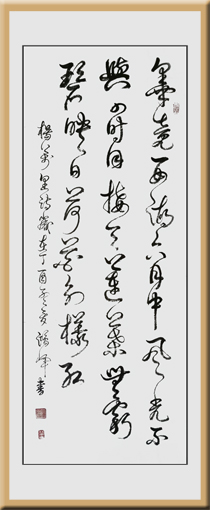 畢竟西湖六月中風光不
與四時同接天蓮葉無窮
碧映日荷花別樣紅
楊萬里詩歲在丁酉書